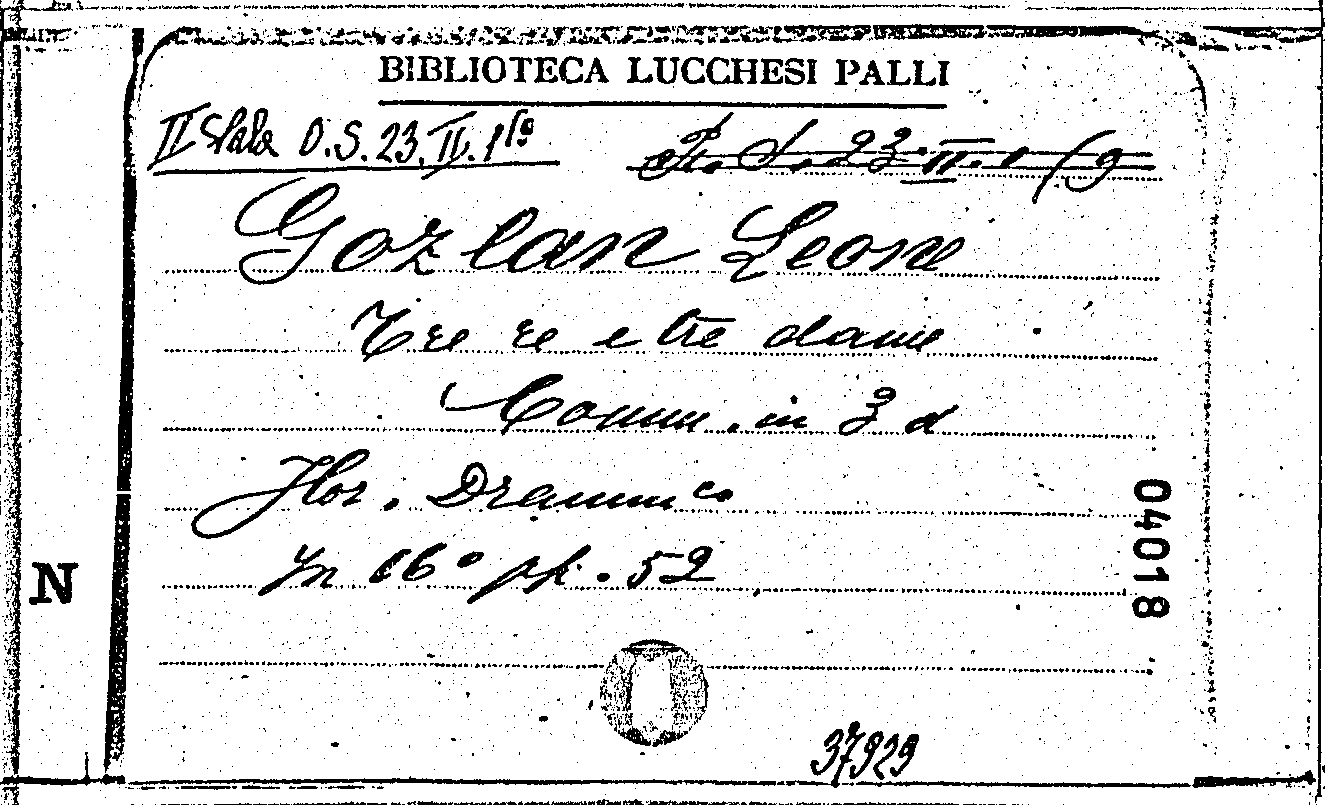 BIBLIOTECA LUCCHESI PALLI
II Sala O.S. 23. II. 1(9 R. S. 23. II. 1 (9
Gozlan Leone
Tre re e tre dame
Comm. in 3 d
Flor. Dramm co
In 16° pp. 52
04018
N
37929